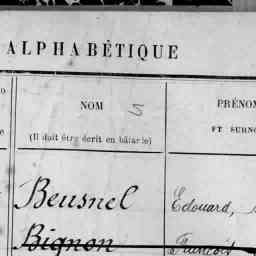 ALPHABÉTIQUE
NOM
5
PRÉNO
(Il doit être écrit en bâtarde)
ET SURNO
Beusnel Edouard,
Bignon François